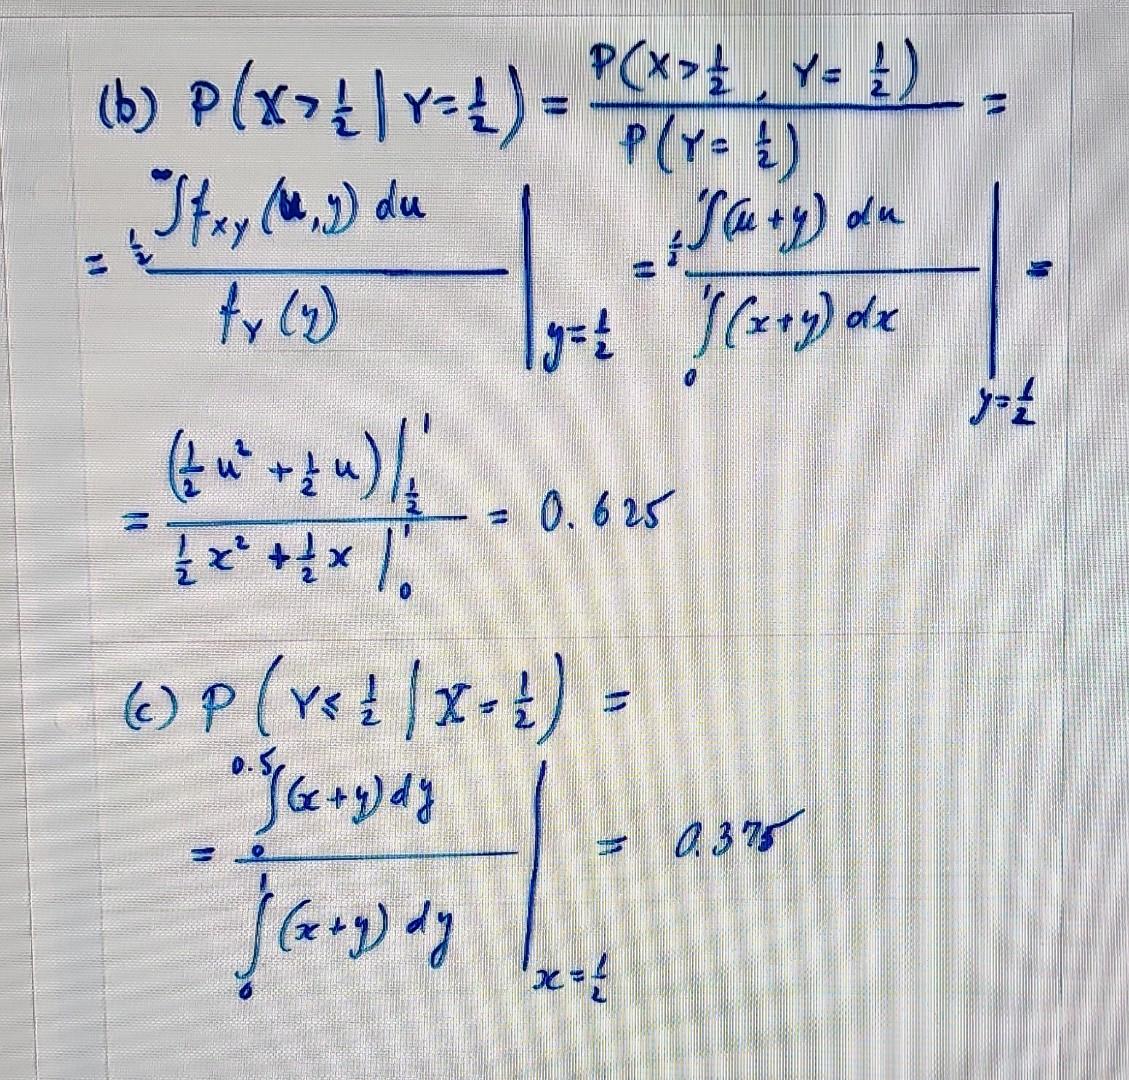 (b) P(X>½ | Y=½) = P(X>½, Y=½) / P(Y=½) =
= ∫_{½}^{∞} f_{XY}(u,y) du / f_Y(y) |_{y=½} = ∫_{½}^{1} (u+y) du / ∫_{0}^{1} (x+y) dx |_{y=½} =
= (½u² + ½u)|_{½}^{1} / ½x² + ½x |_{0}^{1} = 0.625
(c) P(Y≤½ | X=½) =
= ∫_{0}^{0.5} (x+y) dy / ∫_{0}^{1} (x+y) dy |_{x=½} = 0.375